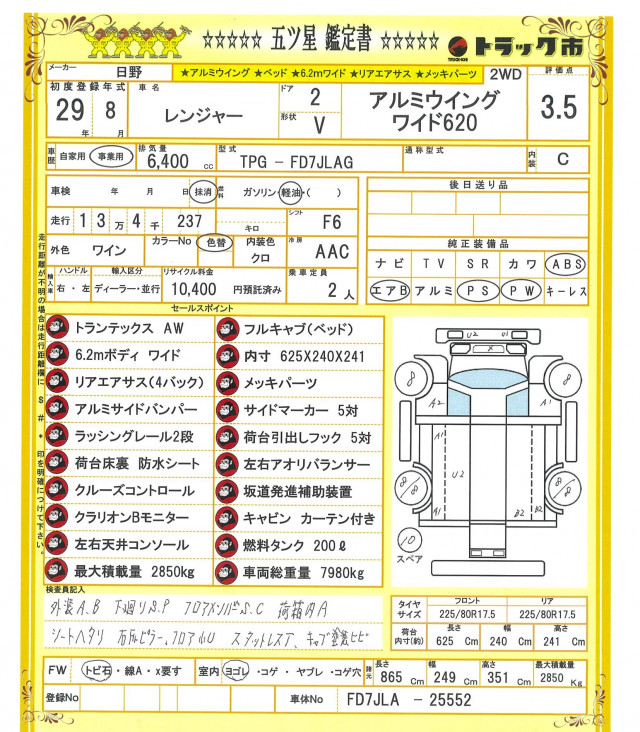 ☆☆☆☆☆ 五ツ星 鑑定書 ☆☆☆☆☆ トラック市
TRUCK-ICHI
メーカー 日野 ★アルミウイング ★ベッド ★6.2mワイド ★リアエアサス ★メッキパーツ 2WD 評価点
初度登録年式 車名 ドア 2 アルミウイング 3.5
29年 8月 レンジャー 形状 V ワイド620
車歴 自家用 事業用 排気量 6,400 cc 型式 TPG - FD7JLAG 通称型式 内装 C
車検 年 月 抹消 燃料 ガソリン・軽油・( ) 後日送り品
走行 1 3万 4千 237 キロ シフト F6
外色 ワイン カラーNo 色替 内装色 クロ 冷房 AAC 純正装備品
ナビ TV SR カワ ABS
輸入車 ハンドル 右・左 輸入区分 ディーラー・並行 リサイクル料金 10,400 円預託済み 乗車定員 2人
エアB アルミ PS PW キーレス
走行距離が不明の場合は走行距離欄に $ # * 印を明確につけて下さい。
セールスポイント
トランテックス AW フルキャブ(ベッド)
6.2mボディ ワイド 内寸 625X240X241
リアエアサス(4バック) メッキパーツ
アルミサイドバンパー サイドマーカー 5対
ラッシングレール2段 荷台引出しフック 5対
荷台床裏 防水シート 左右アオリバランサー
クルーズコントロール 坂道発進補助装置
クラリオンBモニター キャビン カーテン付き
左右天井コンソール 燃料タンク 200ℓ
最大積載量 2850kg 車両総重量 7980kg
U2 U1
X
8 8
A2 A1
A1 U2
8/8 8/8
A1 B2 B2
10
スペア
検査員記入
外装A.B 下廻りS.P フロアメンバーS.C 荷箱内A
シートヘタリ
タイヤサイズ フロント 225/80R17.5 リア 225/80R17.5
荷台内寸(約) 長さ 625 Cm 幅 240 Cm 高さ 241 Cm
FW トビ石・線A・x要す 室内 ヨゴレ・コゲ・ヤブレ・コゲ穴 諸元 長さ 865 Cm 幅 249 Cm 高さ 351 Cm 最大積載量 2850 Kg
登録No 車体No FD7JLA - 25552